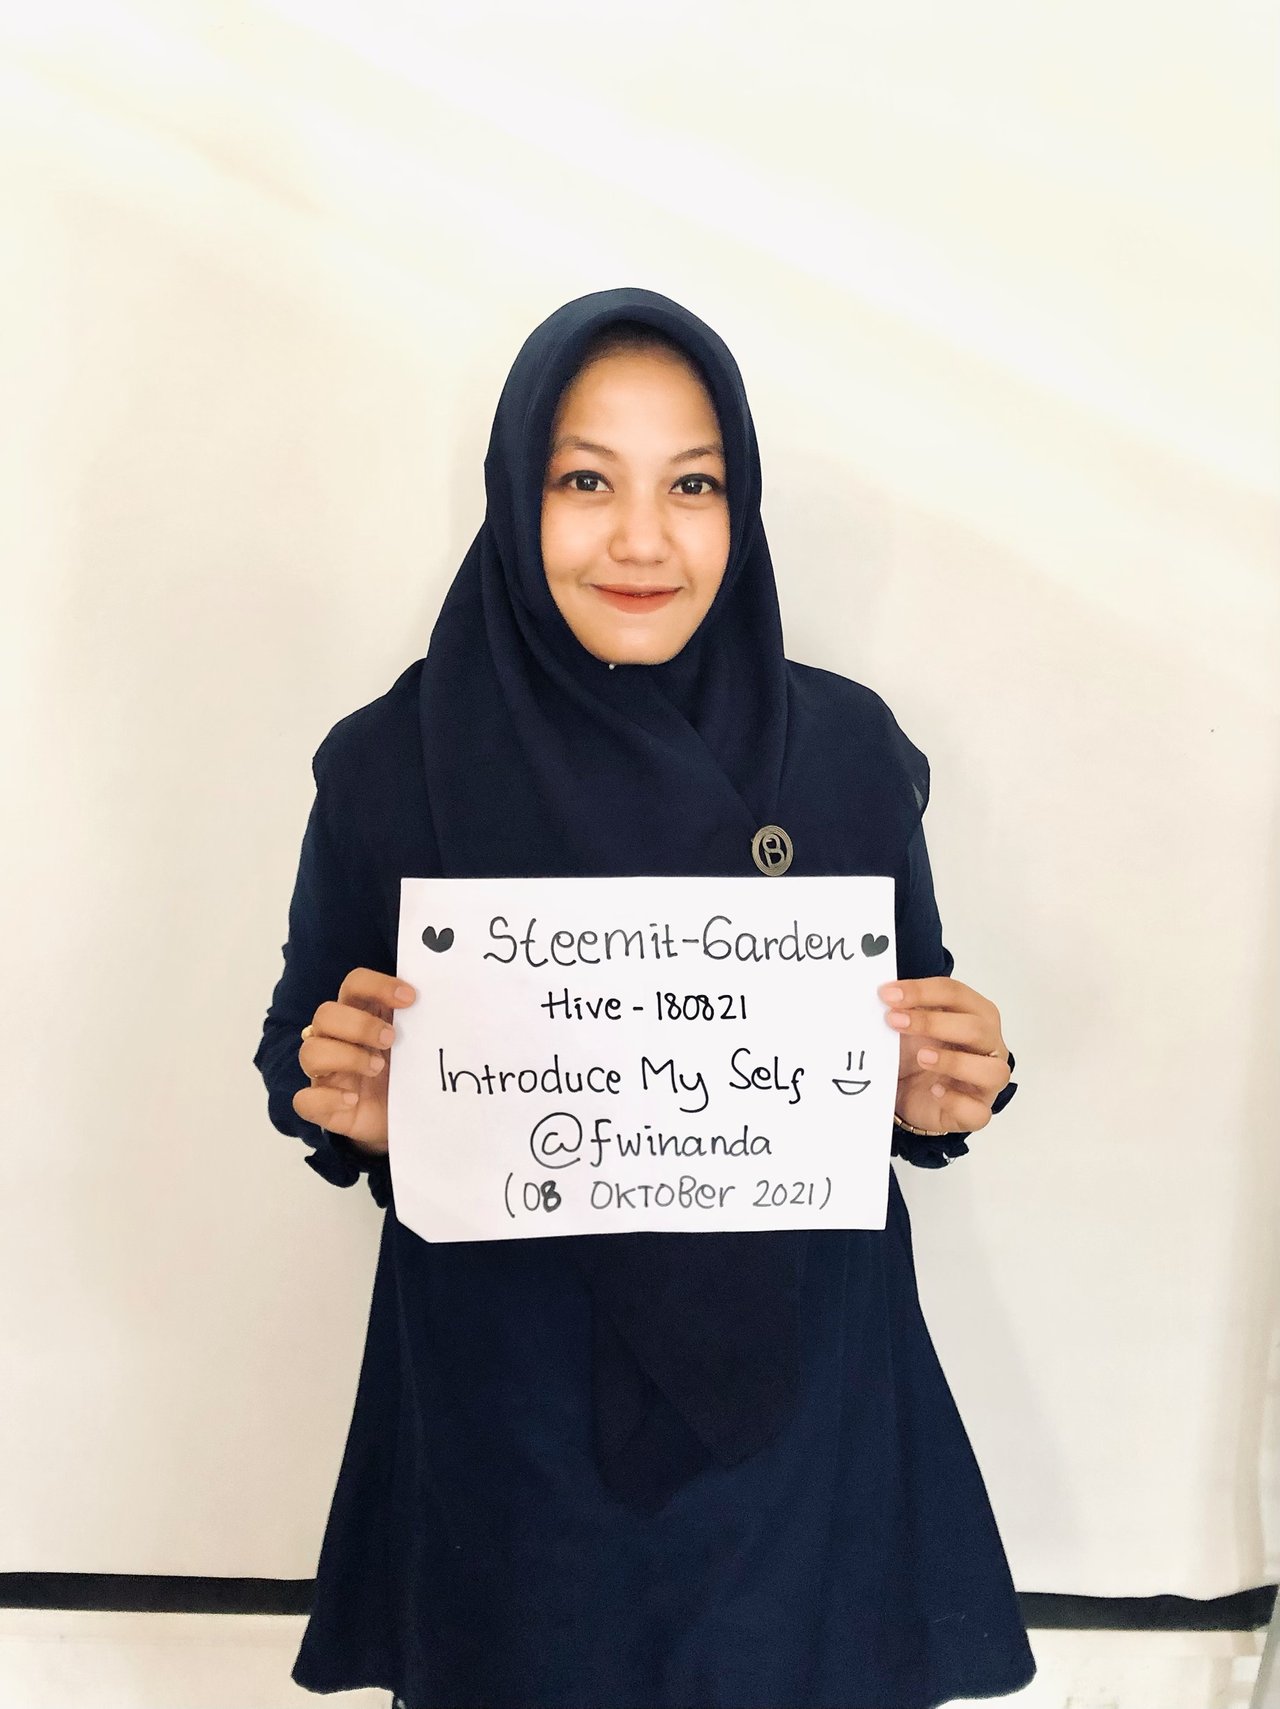 ♥ Steemit-Garden ♥
Hive - 180821
Introduce My Self
@fwinanda
(08 OKTOBER 2021)
B